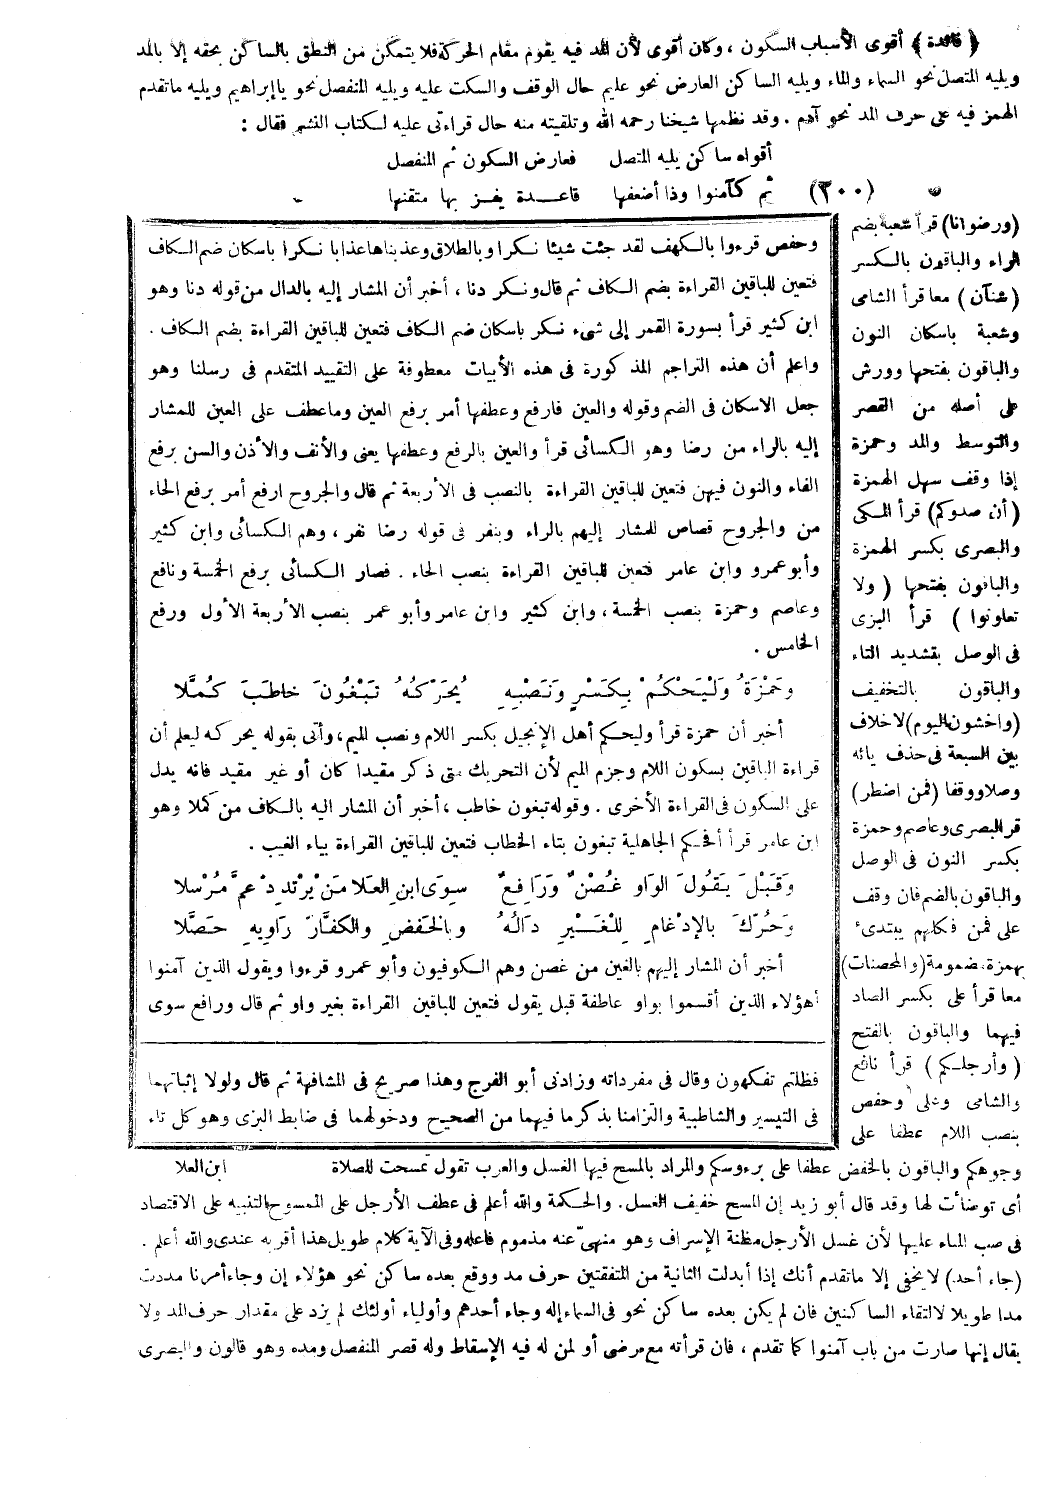 ﴿ فائدة ﴾ أقوى الأسباب السكون ، وكان أقوى لأن المد فيه يقوم مقام الحركة فلا يتمكن من النطق بالساكن بحقه إلا بالمد
ويليه المتصل نحو السماء والماء ويليه الساكن العارض نحو عليم حال الوقف والسكت عليه ويليه المنفصل نحو يا إبراهيم ويليه ما تقدم
الهمز فيه على حرف المد نحو آدم . وقد نظمها شيخنا رحمه الله وتلقيته منه حال قراءتى عليه لكتاب النشر فقال :
أقواه ساكن يليه المتصل فعارض السكون ثم المنفصل
(٢٠٠) ثم كآمنوا وذا أضعفها قاعدة يفز بها متقنها
(ورضوانا) قرأ شعبة بضم
الراء والباقون بالكسر
(شنآن) معا قرأ الشامى
وشعبة باسكان النون
والباقون بفتحها وورش
على أصله من القصر
والتوسط والمد وحمزة
إذا وقف سهل الهمزة
(أن صدوكم) قرأ المكى
والبصرى بكسر الهمزة
والباقون بفتحها ( ولا
تعاونوا ) قرأ البزى
فى الوصل بتشديد التاء
والباقون بالتخفيف
(واخشون اليوم) لاخلاف
بين السبعة فى حذف يائه
وصلا ووقفا (فمن اضطر)
قر البصرى وعاصم وحمزة
بكسر النون فى الوصل
والباقون بالضم فان وقف
على فمن فكلهم يبتدىء
بهمزة مضمومة (والمحصنات)
معا قرأ على بكسر الصاد
فيهما والباقون بالفتح
(وأرجلكم) قرأ نافع
والشامى وعلى وحفص
بنصب اللام عطفا على
وحفص قرءوا بالكهف لقد جئت شيئا نكرا وبالطلاق وعذبناها عذابا نكرا باسكان ضم الكاف
فتعين للباقين القراءة بضم الكاف ثم قال ونكر دنا ، أخبر أن المشار إليه بالدال من قوله دنا وهو
ابن كثير قرأ بسورة القمر إلى شىء نكر باسكان ضم الكاف فتعين للباقين القراءة بضم الكاف .
واعلم أن هذه التراجم المذكورة فى هذه الأبيات معطوفة على التقييد المتقدم فى رسلنا وهو
جعل الاسكان فى الضم وقوله والعين فارفع وعطفها أمر برفع العين وما عطف على العين للمشار
إليه بالراء من رضا وهو الكسائى قرأ والعين بالرفع وعطفها يعنى والأنف والأذن والسن برفع
الفاء والنون فيهن فتعين للباقين القراءة بالنصب فى الأربعة ثم قال والجروح ارفع أمر برفع الحاء
من والجروح قصاص للمشار إليهم بالراء وبنفر فى قوله رضا نفر ، وهم الكسائى وابن كثير
وأبو عمرو وابن عامر فتعين للباقين القراءة بنصب الحاء . فصار الكسائى برفع الخمسة ونافع
وعاصم وحمزة بنصب الخمسة ، وابن كثير وابن عامر وأبو عمر بنصب الأربعة الأول ورفع
الخامس .
وَحَمْزَةُ وَلْيَحْكُمْ بِكَسْرٍ وَنَصْبِهِ يُحَرِّكُهُ تَبْغُونَ خَاطَبَ كُمَّلَا
أخبر أن حمزة قرأ وليحكم أهل الإنجيل بكسر اللام ونصب الميم ، وأتى بقوله يحركه ليعلم أن
قراءة الباقين بسكون اللام وجزم الميم لأن التحريك متى ذكر مقيدا كان أو غير مقيد فانه يدل
على السكون فى القراءة الأخرى . وقوله تبغون خاطب ، أخبر أن المشار اليه بالكاف من كملا وهو
ابن عامر قرأ أفحكم الجاهلية تبغون بتاء الخطاب فتعين للباقين القراءة بياء الغيب .
وَقَبْلَ يَقُولُ الوَاوُ غُصْنٌ وَرَافِعٌ سِوَى ابنِ العَلا مَنْ يَرْتَدِدْ عَمَّ مُرْسَلا
وَحُرِّكَ بالإدْغَامِ لِلْغَيْرِ دَالُهُ وبالخَفْضِ والكفَّارَ رَاوِيهِ حَصَّلا
أخبر أن المشار إليهم بالغين من غصن وهم الكوفيون وأبو عمرو قرءوا ويقول الذين آمنوا
أهؤلاء الذين أقسموا بواو عاطفة قبل يقول فتعين للباقين القراءة بغير واو ثم قال ورافع سوى
فظلتم تفكهون وقال فى مفرداته وزادنى أبو الفرج وهذا صريح فى المشافهة ثم قال ولولا إثباتهما
فى التيسير والشاطبية والتزامنا بذكر ما فيهما من الصحيح ودخولهما فى ضابط البزى وهو كل تاء
ابن العلا
وجوهكم والباقون بالخفض عطفا على برءوسكم والمراد بالمسح فيها الغسل والعرب تقول تمسحت للصلاة
أى توضأت لها وقد قال أبو زيد إن المسح خفيف الغسل . والحكمة والله أعلم فى عطف الأرجل على الممسوح التنبيه على الاقتصاد
فى صب الماء عليها لأن غسل الأرجل مظنة الإسراف وهو منهىّ عنه مذموم فاعله وفى الآية كلام طويل هذا أقربه عندى والله أعلم .
(جاء أحد) لا يخفى إلا ما تقدم أنك إذا أبدلت الثانية من المتفقتين حرف مد ووقع بعده ساكن نحو هؤلاء إن وجاء أمرنا مددت
مدا طويلا لالتقاء الساكنين فان لم يكن بعده ساكن نحو فى السماء إله وجاء أحدهم وأولياء أولئك لم يزد على مقدار حرف المد ولا
يقال إنها صارت من باب آمنوا كما تقدم ، فان قرأته مع مرضى أو لمن له فيه الإسقاط وله قصر المنفصل ومده وهو قالون والبصرى